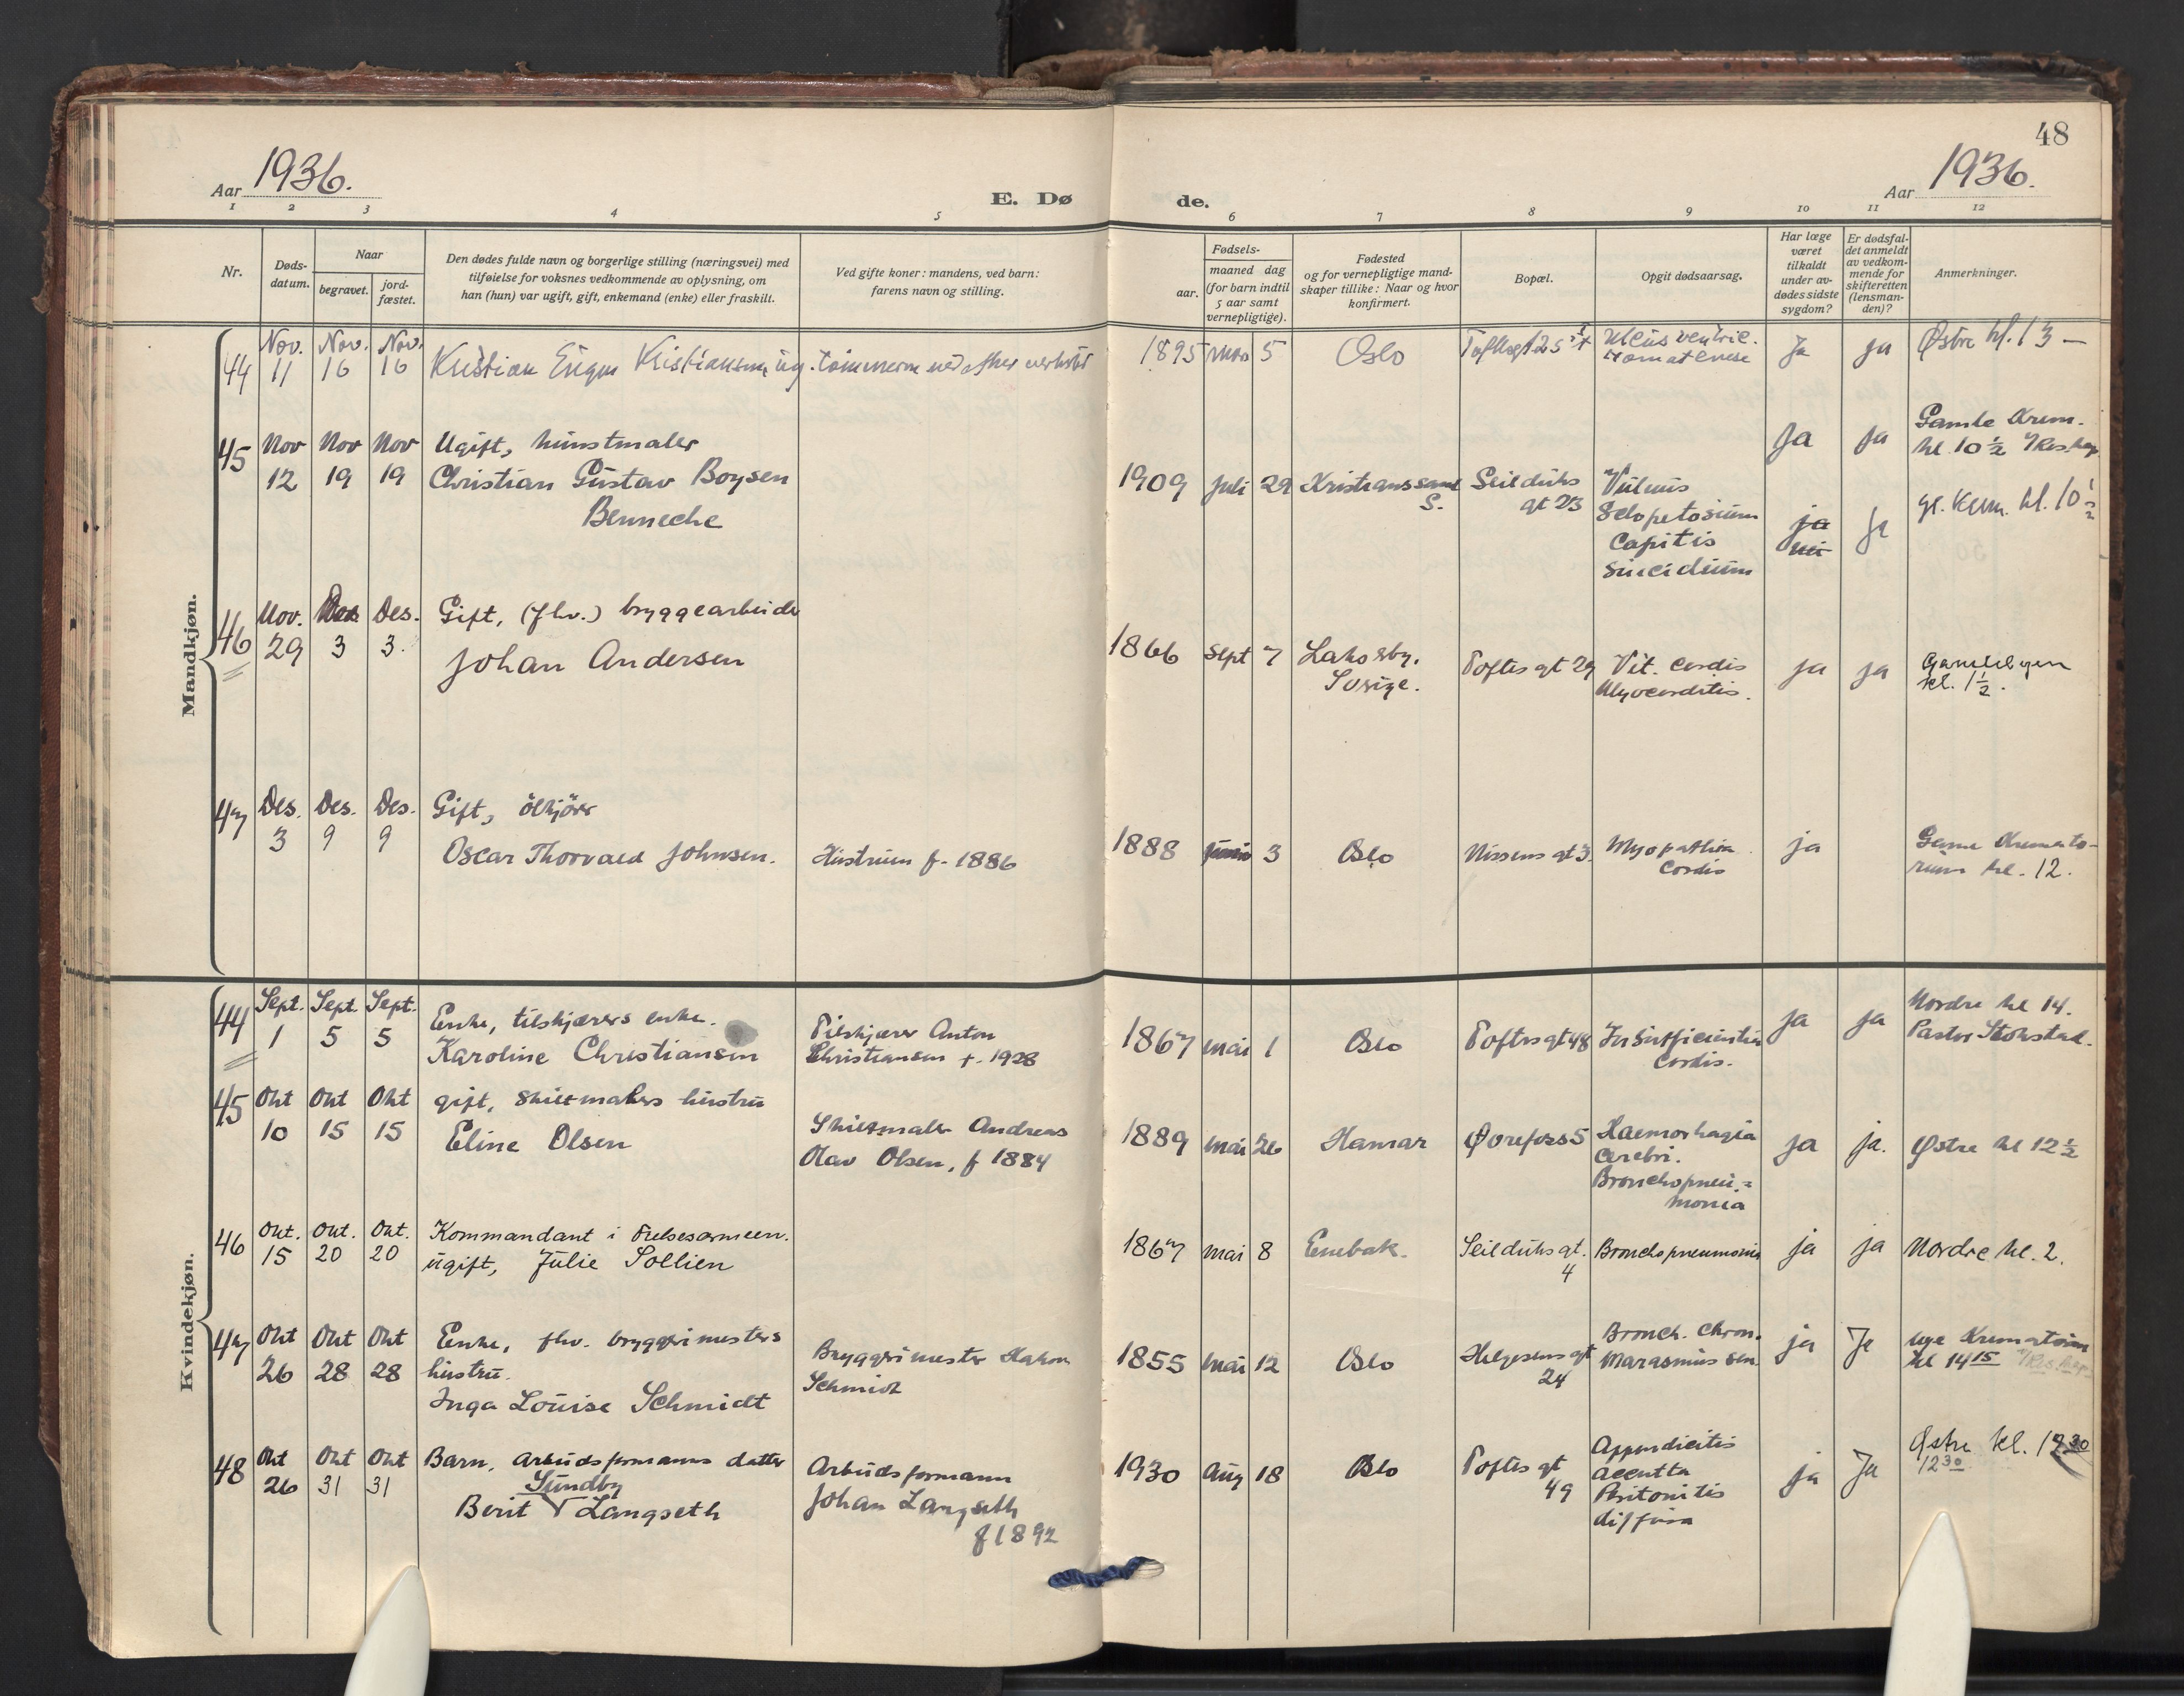 48
Aar 1936.
E. Dø
de.
Aar 1936.
1 2 3 4 5 6 7 8 9 10 11 12
Nr.
Døds-
datum.
Naar
begravet.
jord-
fæstet.
Den dødes fulde navn og borgerlige stilling (næringsvei) med
tilføielse for voksnes vedkommende av oplysning, om
han (hun) var ugift, gift, enkemand (enke) eller fraskilt.
Ved gifte koner: mandens, ved barn:
farens navn og stilling.
Fødsels-
aar.
maaned dag
(for barn indtil
5 aar samt
vernepligtige).
Fødested
og for vernepligtige mand-
skaper tillike: Naar og hvor
konfirmert.
Bopæl.
Opgit dødsaarsag.
Har læge
været
tilkaldt
under av-
dødes sidste
sygdom?
Er dødsfal-
det anmeldt
av vedkom-
mende for
skifteretten
(lensman-
den)?
Anmerkninger.
Mandkjøn.
44
Nov. 11
Nov. 16
Nov. 16
Kristian Kristiansen ug.
1895
5
Oslo
Ulcus ventric.
Ja
ja
Østre kl. 13 —
45
Nov 12
Nov 19
Nov 19
Ugift, kunstmaler
Christian Gustav Boysen
Bennecke
1909
juli
29
Kristianssand
S.
Seilduks
gt 23
Vulnus
Sclopetosium
Capitis
Suicidium
Ja
ja
nei
ja
Ja
Gamle Krem.
kl 10 ½
gl. Krem. kl. 10 ½
46
Nov. 29
Des 3
Des. 3.
Gift, (fhv.) bryggearbeider
Johan Andersen
1866
Sept
7
Sverige.
Toftes gt 29
Vit. Cordis
Myocarditis.
ja
ja
Gamlebyen
kl. 1½.
47
Des. 3
Des. 9
Des. 9
Gift, ölkjörer
Oscar Thorvald Johnsen.
Hustruen f. 1886
1888
juni
3
Oslo
Nissens gt 3
Myopathia
Cordis
ja
Gamle Kremato-
rium kl. 12.
Kvindekjøn.
44
Sept. 1
Sept. 5
Sept. 5
Enke, tilskjærers enke.
Karoline Christiansen
Tilskjærer Anton
Christiansen +. 1928
1867
mai
1
Oslo
Toftesgt 48
Insufficientia
Cordis.
ja
ja
Nordre kl 14.
Pastor Stokstad.
45
Okt 10
Okt 15
Okt 15
gift, skiltmalers hustru
Eline Olsen
Skiltmaler Andreas
Olav Olsen, f 1884
1889
mai
26
Hamar
Øvrefoss 5
Haemorhagia
Cerebri.
Bronchopneu-
monia
ja
ja.
Østre kl 12½
46
Okt. 15
Okt. 20
Okt. 20
Kommandant i Frelsesarmeen.
ugift, Julie Sollien
1867
mai
8
Enebak.
Seilduks gt.
4
Bronchopneumonia
ja
ja
Nordre kl. 2.
47
Okt 26
Okt 28
Okt 28
Enke, fhv. bryggerimesters
hustru.
Inga Louise Schmidt
Bryggerimester Hakon
Schmidt
1855
mai
12
Oslo
Helgesens gt
24
Bronch. Chron.
Marasmus sen.
ja
Ja
nye Krematorium
kl 14 15
48
Okt 26
Okt 31
Okt 31
Barn, arbeidsformanns datter
Sundby
Berit Langseth
Arbeidsformann
Johan Langseth
f 1892
1930
Aug
18
Oslo
Toftes gt
49
Appendicitis
accutta
Peritonitis
diffusa
ja
Ja
Østre kl.
12 30